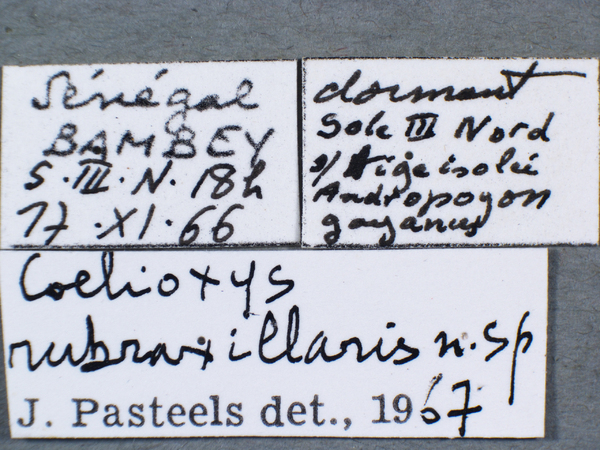 Sénégal
BAMBEY
S.III.N. 18h
17.XI.66
dormant
Sole III Nord
s/ tige isolée
Andropogon
gayanus
Coelioxys
rubraxillaris n.sp
J. Pasteels det., 1967